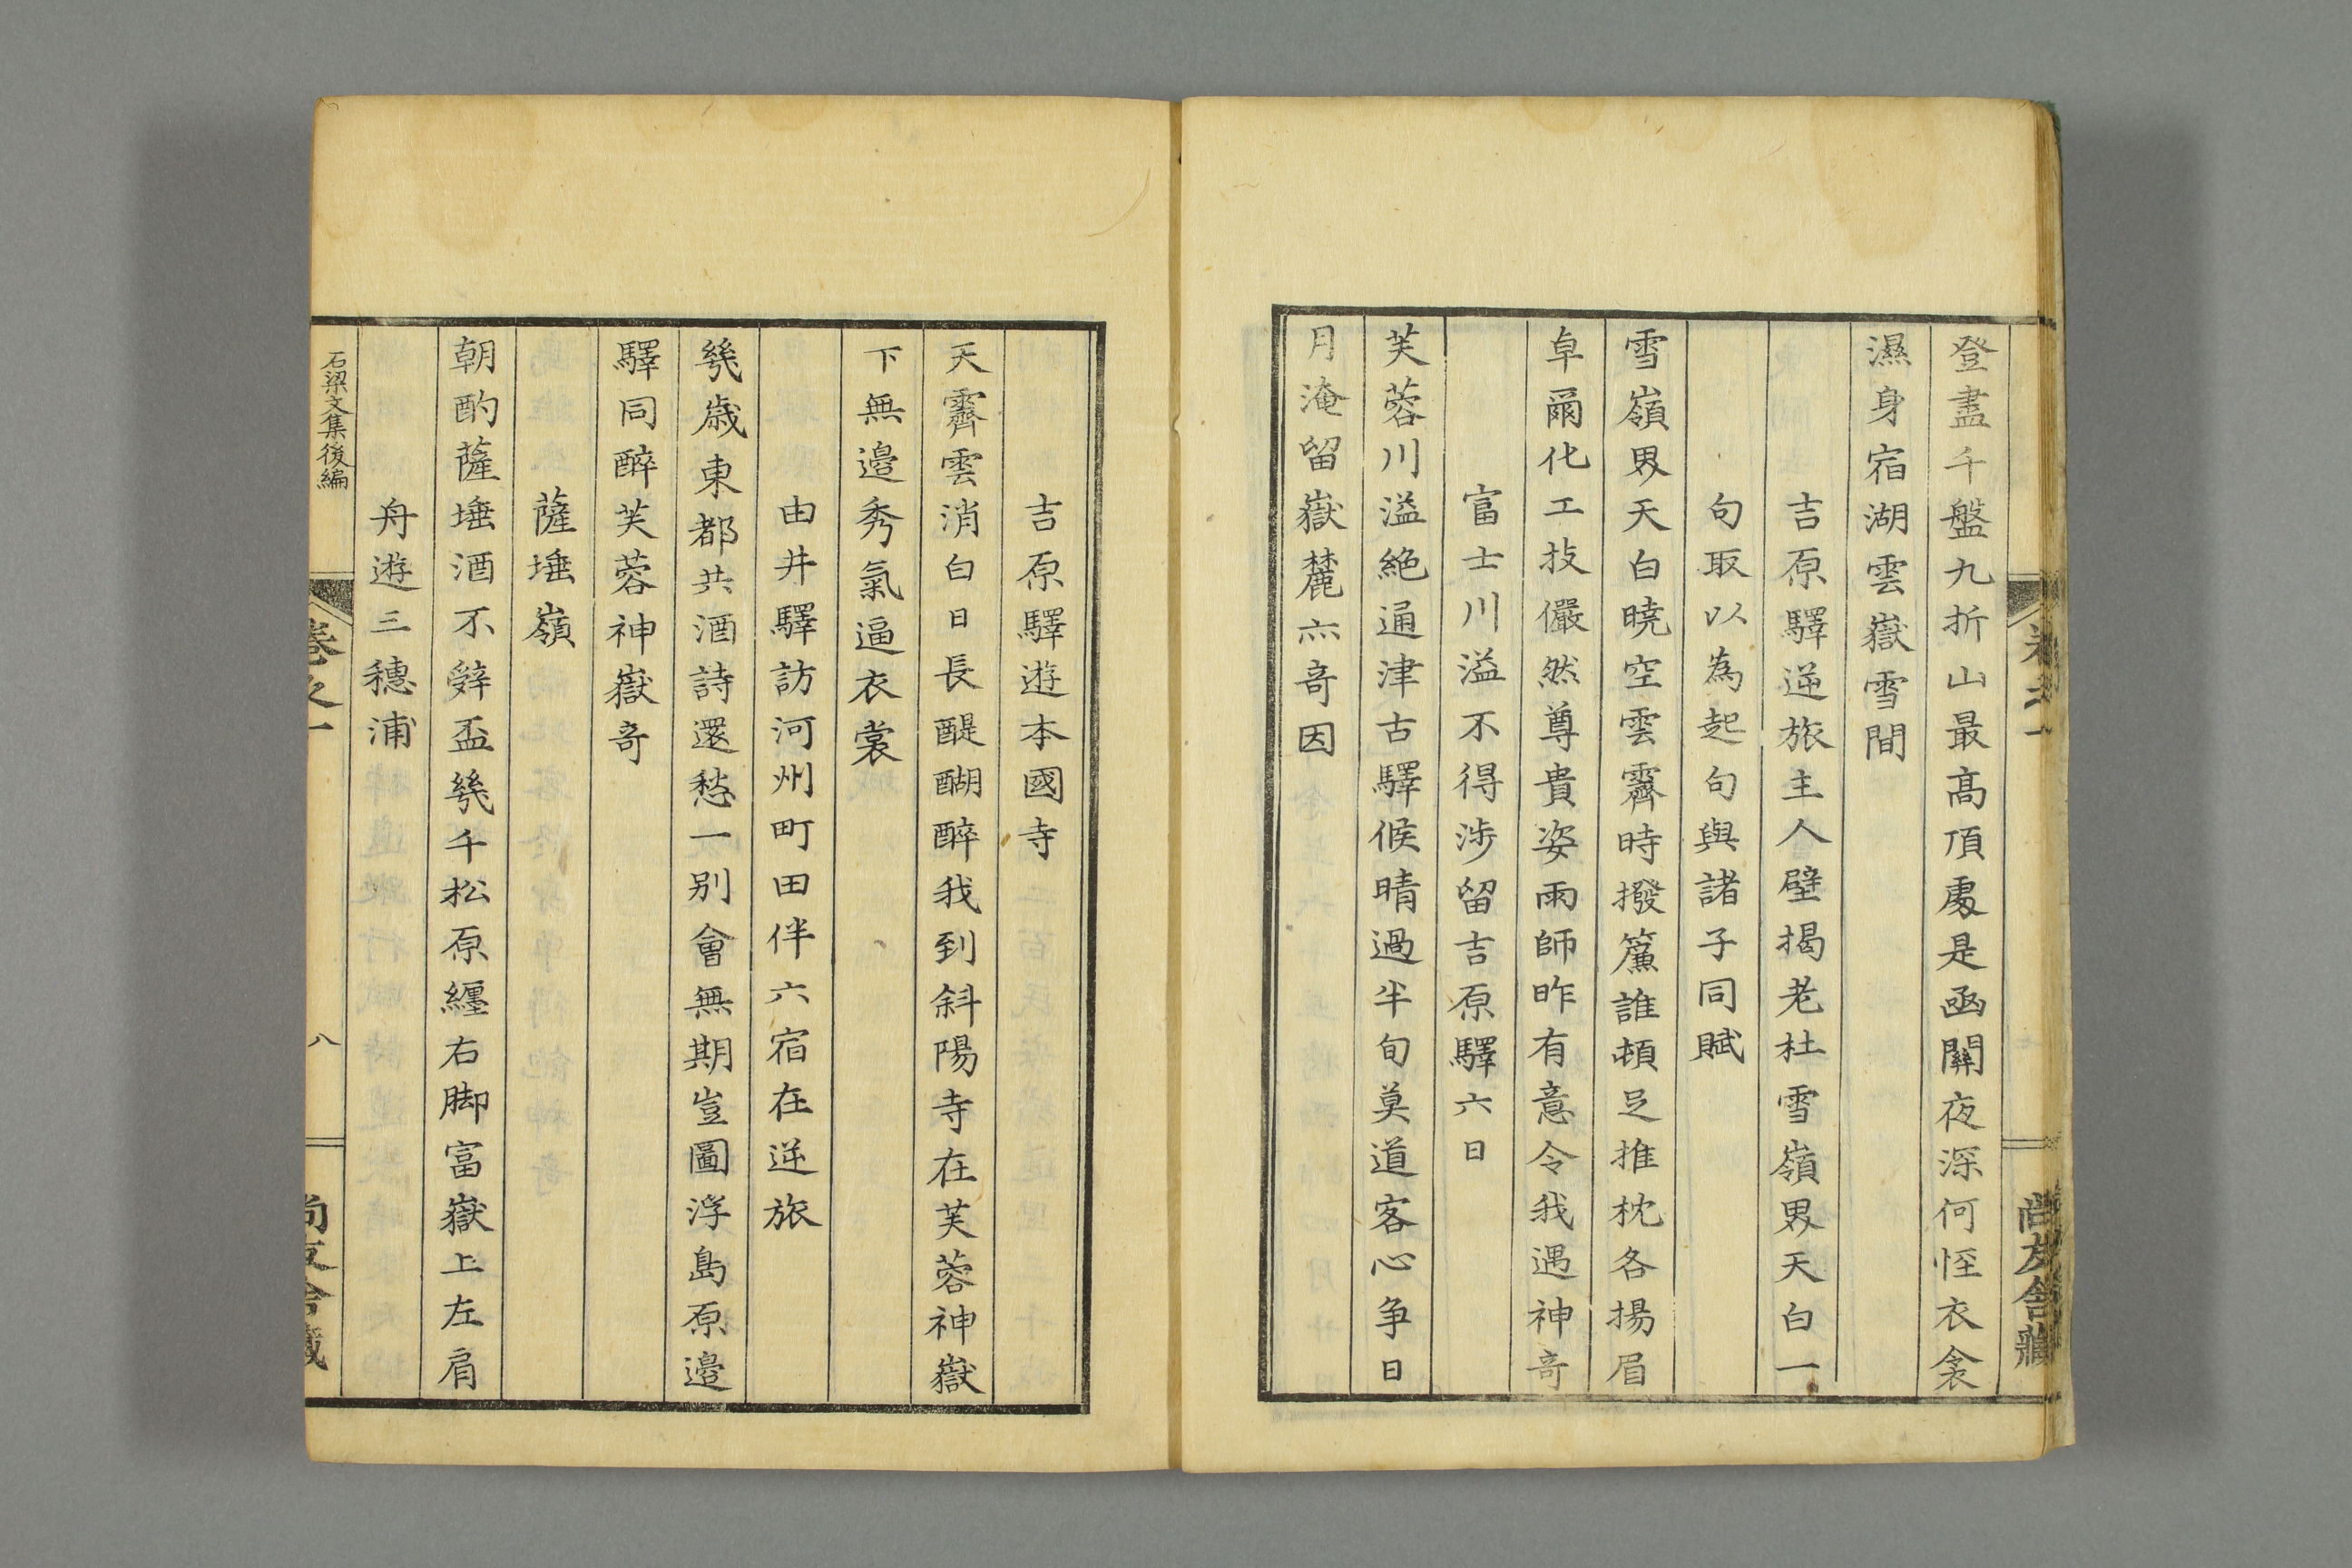 登盡千盤九折山最高頂處是函關夜深何恠衣衾
濕身宿湖雲嶽雪間
吉原驛逆旅主人壁揭老杜雪嶺界天白一
句取以為起句與諸子同賦
雪嶺界天白曉空雲霽時撥簾誰頓足推枕各揚眉
卓爾化工技儼然尊貴姿雨師昨有意令我遇神奇
富士川溢不得涉留吉原驛六日
芙蓉川溢絶通津古驛候晴過半旬莫道客心争日
月淹留嶽麓亦奇因
吉原驛遊本國寺
天霽雲消白日長醍醐醉我到斜陽寺在芙蓉神嶽
下無邊秀氣逼衣裳
由井驛訪河州町田伴六宿在逆旅
幾歳東都共酒詩還愁一別會無期豈圖浮島原邊
驛同醉芙蓉神嶽奇
薩埵嶺
朝酌薩埵酒不辤盃幾千松原纒右脚富嶽上左肩
舟遊三穗浦
石梁文集後編
卷之一
八
尚友舍藏